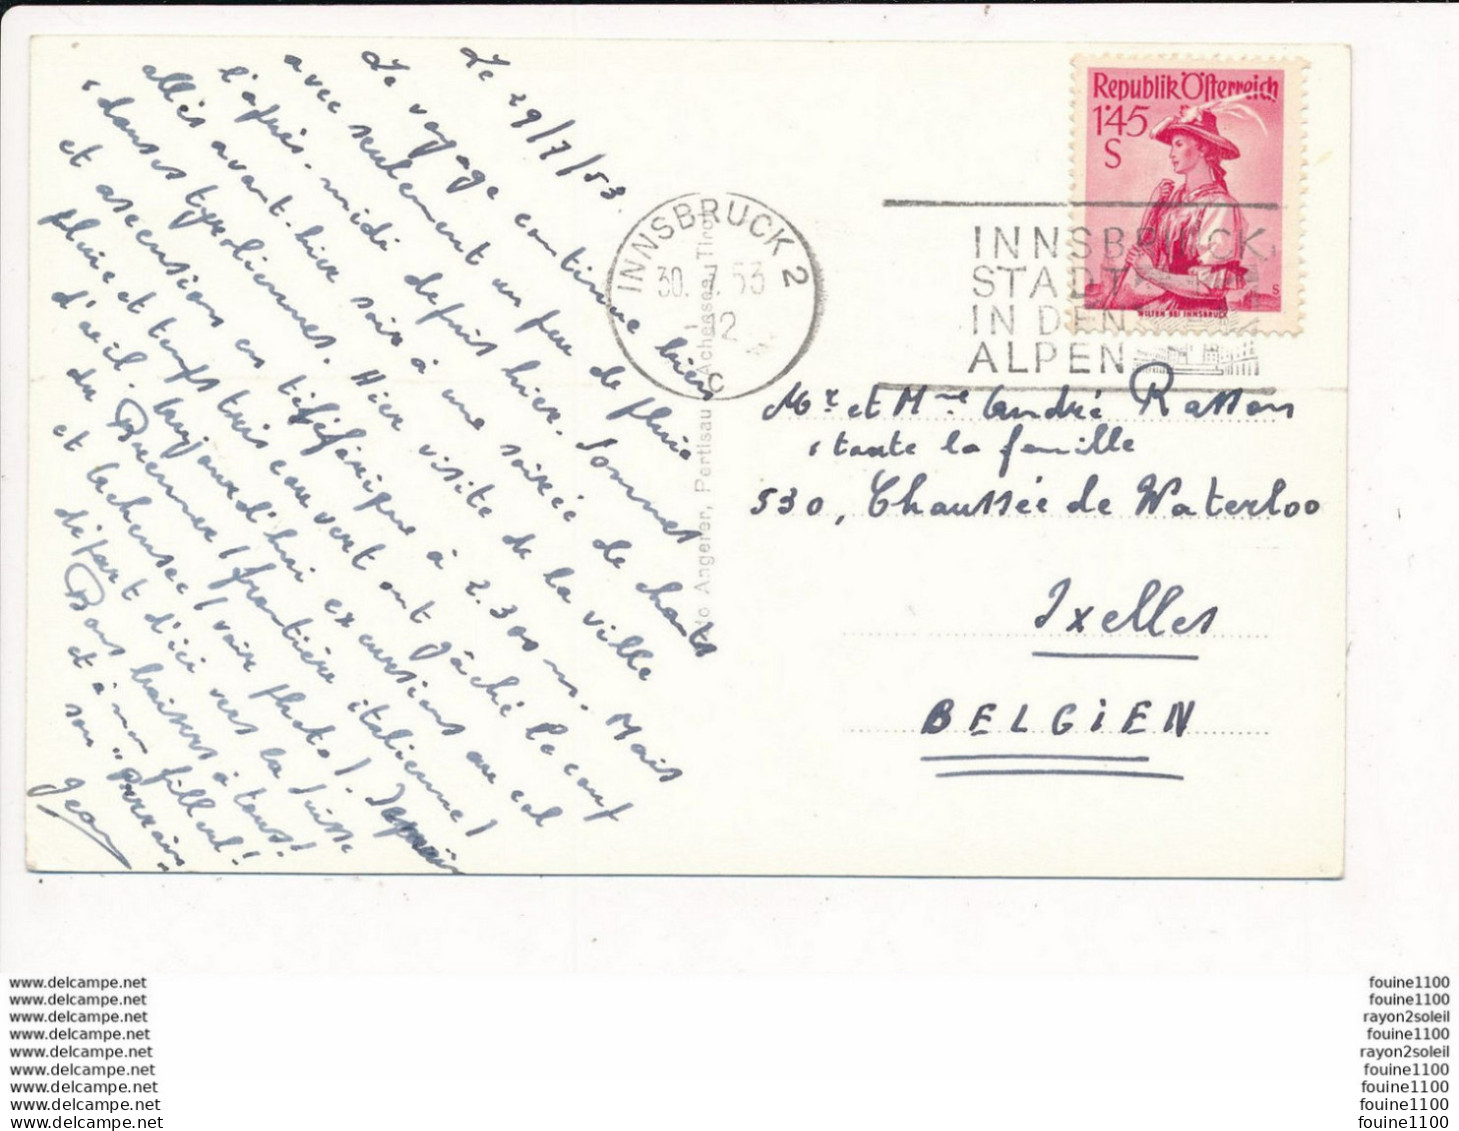 Le 29/7/53.
Le voyage continue bien
avec seulement un peu de pluie
l'après-midi depuis hier. Sommes
allés avant-hier soir à une soirée de chants
et danses tyroliennes. Hier visite de la ville
et ascension en téléférique à 2.300 m. Mais
pluie et temps très couvert ont gâché le coup
d'œil. Aujourd'hui excursions au col
du Brenner (frontière italienne)
et Achensee (voir photo).
départ d'ici vers la Suisse
Bons baisers à tous!
et à mon filleul!
son "Parrain"
Jean
Ado Angerer, Pertisau Achensee, Tirol
INNSBRUCK 2
30.7.53
12
c
INNSBRUCK,
STADT
IN DEN
ALPEN
Republik Österreich
1·45
S
WILTEN BEI INNSBRUCK
Mr et Mme André Rasson
& toute la famille
530, Chaussée de Waterloo
Ixelles
BELGIEN
www.delcampe.net
www.delcampe.net
www.delcampe.net
www.delcampe.net
www.delcampe.net
www.delcampe.net
www.delcampe.net
www.delcampe.net
www.delcampe.net
fouine1100
fouine1100
rayon2soleil
fouine1100
rayon2soleil
fouine1100
fouine1100
fouine1100
fouine1100